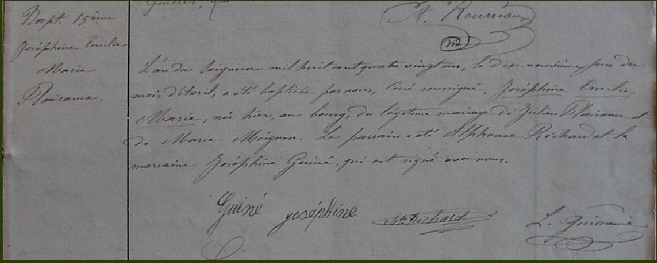 A. Rousseau
Bapt. 15ème
Joséphine Emilie
Marie
L'an du Seigneur mil huit cent quatre vingt onze, le dix neuvième jour du
mois d'Avril, a été baptisée par nous, Curé soussigné, Joséphine Emilie
Marie, née hier, au bourg, du légitime mariage de Julien et
de Marie Moignon. Le parrain a été Alphonse Richard et la
marraine Joséphine Guiné, qui ont signé avec nous.
Guiné joséphine Richard